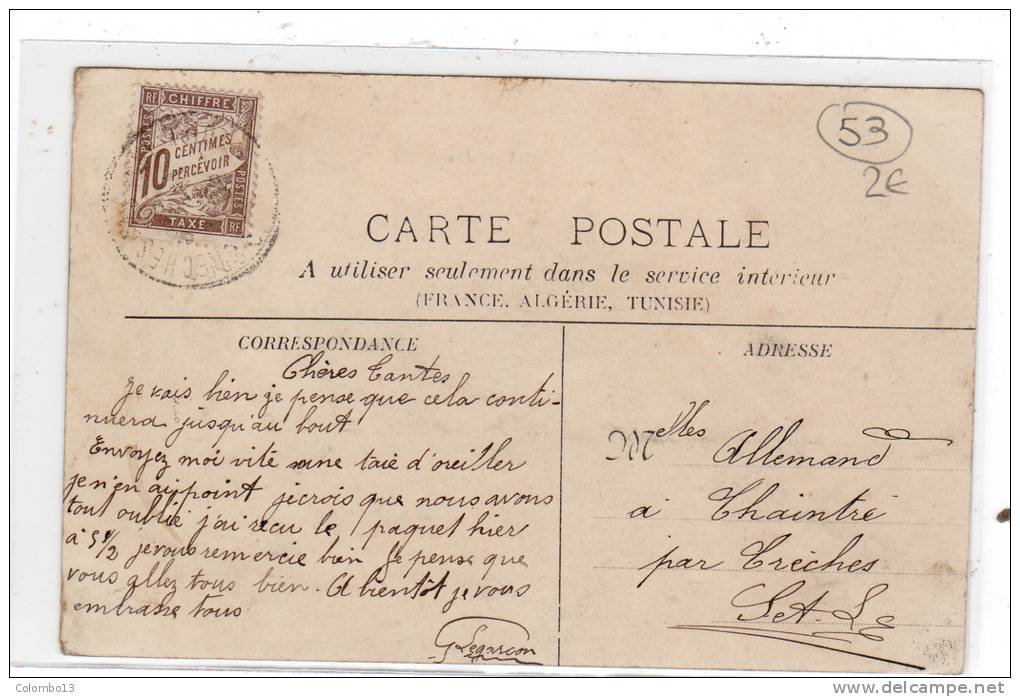 RF CHIFFRE
POSTES
10 CENTIMES
A
PERCEVOIR
POSTES
TAXE RF
53
2€
CARTE POSTALE
A utiliser seulement dans le service intérieur
(FRANCE, ALGÉRIE, TUNISIE)
CORRESPONDANCE
Chères Tantes
Je vais bien je pense que cela conti-
nuera jusqu'au bout
Envoyez moi vite une taie d'oreiller
je n'en ai point je crois que nous avons
tout oublié j'ai reçu le paquet hier
à 5h 1/2 je vous remercie bien Je pense que
vous allez tous bien. A bientôt je vous
embrasse tous
G Legarçon
ADRESSE
Melles Allemand
à Chaintré
par Crèches
S et L
Colombo13
www.delcampe.net